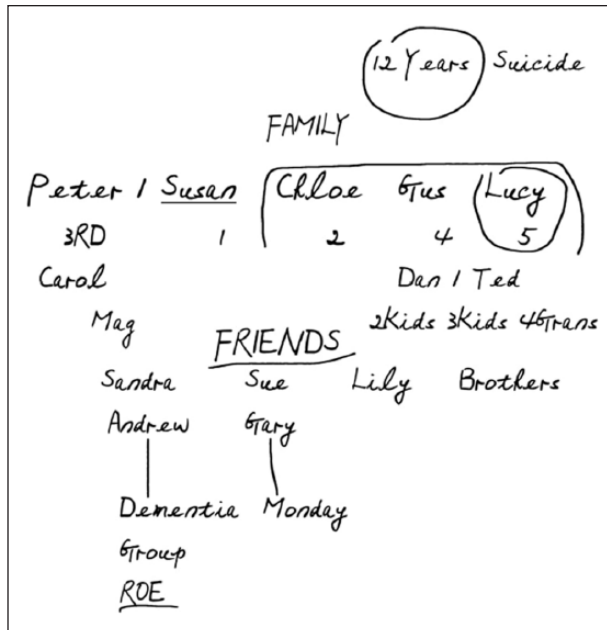 12 Years Suicide
FAMILY
Peter / Susan Chloe Gus Lucy
3RD 1 2 4 5
Carol Dan / Ted
Mag 2Kids 3Kids 4Grans
FRIENDS
Sandra Sue Lily Brothers
Andrew Gary
Dementia Monday
Group
ROE